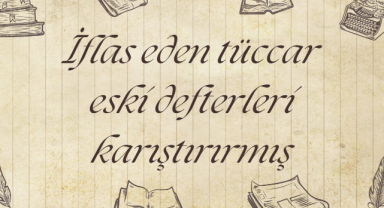 İflas eden tüccar
eski defterleri
karıştırırmış